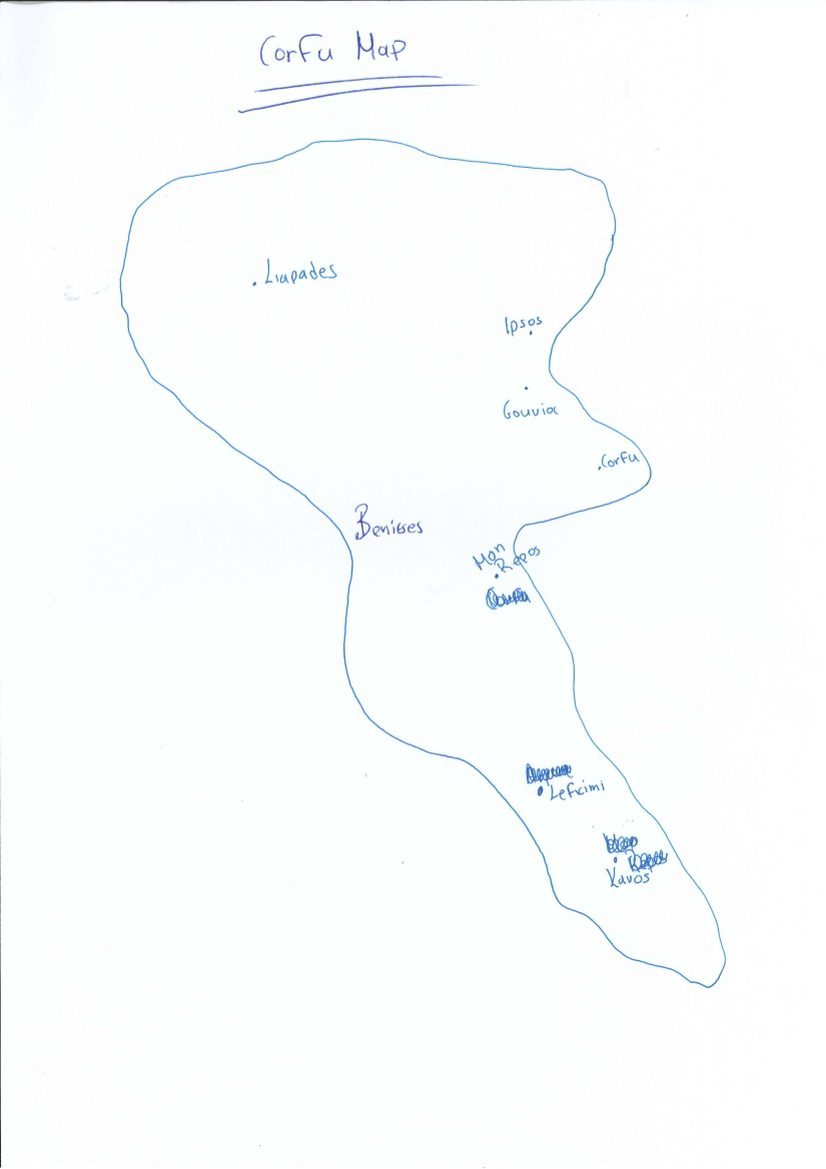 Corfu Map
Liapades
Ipsos
Gouvia
Corfu
Benitses
Mon
Repos
Lefkimi
Kavos